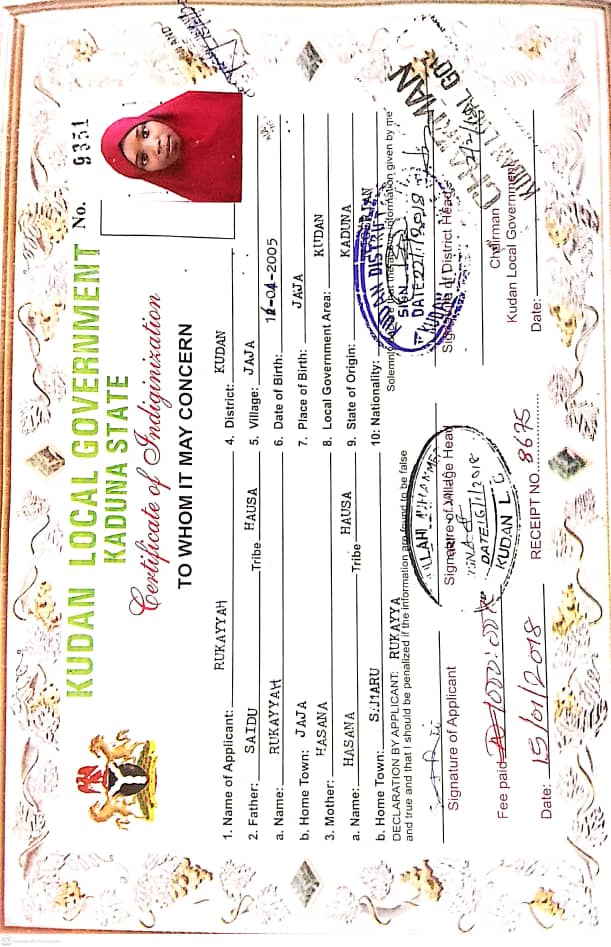 KUDAN LOCAL GOVERNMENT
KADUNA STATE
No. 9351
Certificate of Indiginization
TO WHOM IT MAY CONCERN
1. Name of Applicant: RUKAYYAH
2. Father: SAIDU Tribe HAUSA
a. Name: RUKAYYAH
b. Home Town: JAJA
3. Mother: HASANA
a. Name: HASANA Tribe HAUSA
b. Home Town:
4. District: KUDAN
5. Village: JAJA
6. Date of Birth: -04-2005
7. Place of Birth: JAJA
8. Local Government Area: KUDAN
9. State of Origin: KADUNA
10: Nationality:
DECLARATION BY APPLICANT: RUKAYYA
Solemnly that the information given by me
and true and that I should be penalized if the information are found to be false
Signature of Applicant
Signature of Village Head
DATE 16/1/2018
KUDAN L.G
Signature of District Heads
KUDAN DISTRICT
SIGN
DATE 22/1/2018
KUDAN
CHAIRMAN
KUDAN LOCAL GOVT
Chairman
Kudan Local Government
Date:
Fee paid ₦1000:00K
RECEIPT NO 8675
Date: 15/01/2018